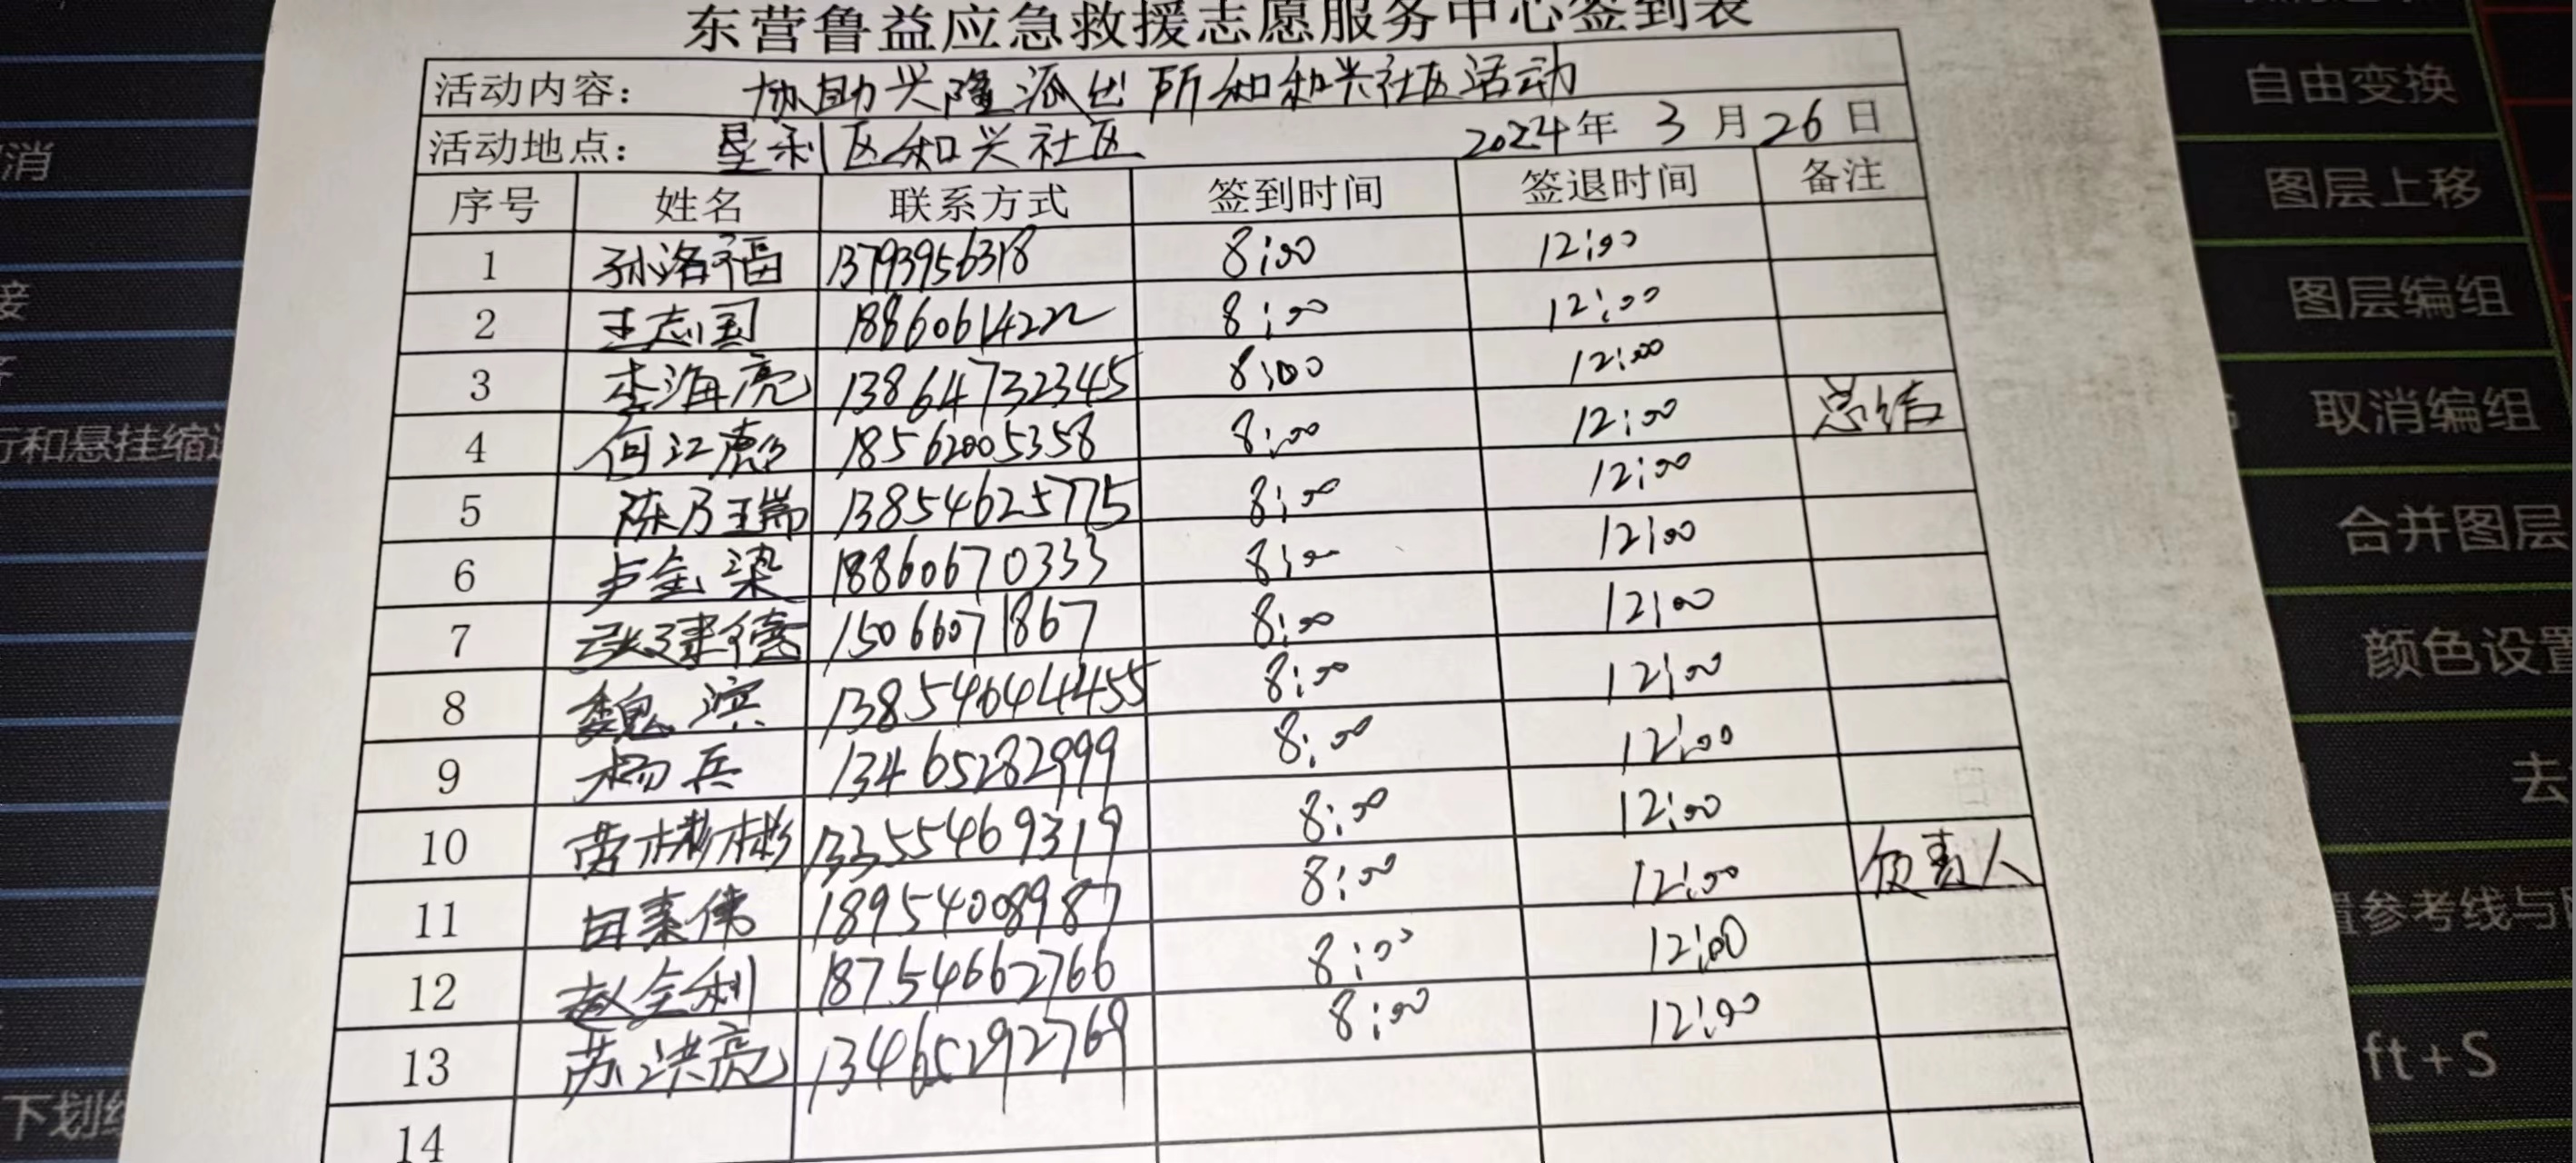 东营鲁益应急救援志愿服务中心签到表
活动内容： 协助兴隆派出所和和兴社区活动
活动地点： 垦利区和兴社区 2024年 3 月 26 日
序号 姓名 联系方式 签到时间 签退时间 备注
1 孙洛福 13793956318 8:00 12:00
2 王志国 18860614222 8:00 12:00
3 李海亮 13864732345 8:00 12:00
4 何江彪 18562005358 8:00 12:00 总结
5 陈乃瑞 13854625775 8:00 12:00
6 卢金染 18860670333 8:00 12:00
7 张建德 15066071867 8:00 12:00
8 魏滨 13854644455 8:00 12:00
9 杨兵 13465282999 8:00 12:00
10 彬彬 13355469319 8:00 12:00
11 田素伟 18954008987 8:00 12:00 负责人
12 赵全利 18754662766 8:00 12:00
13 苏洪亮 13465292769 8:00 12:00
14
消
接
行和悬挂缩进
下划线
自由变换
图层上移
图层编组
取消编组
合并图层
颜色设置
去
置参考线与
ft+S